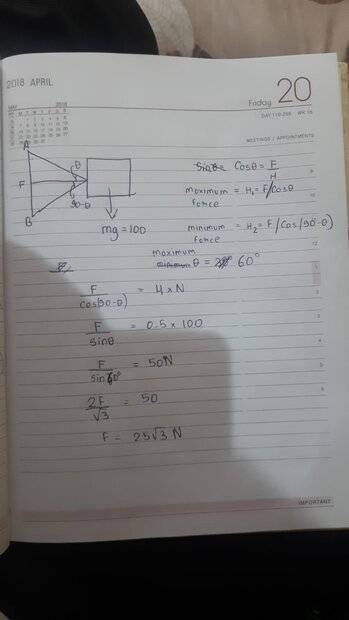 2018 APRIL
Friday 20
DAY 110-255 WK 16
MAY 2018
MEETINGS / APPOINTMENTS
A
θ
F
90-θ
B
mg = 100
Sinθ = Cosθ = F/H
maximum force = H₁ = F/Cosθ
minimum force = H₂ = F/Cos(90-θ)
maximum
minimum θ = 60°
F/cos(90-θ) = μ×N
F/sinθ = 0.5 × 100
F/sin60° = 50N
2F/√3 = 50
F = 25√3 N
IMPORTANT